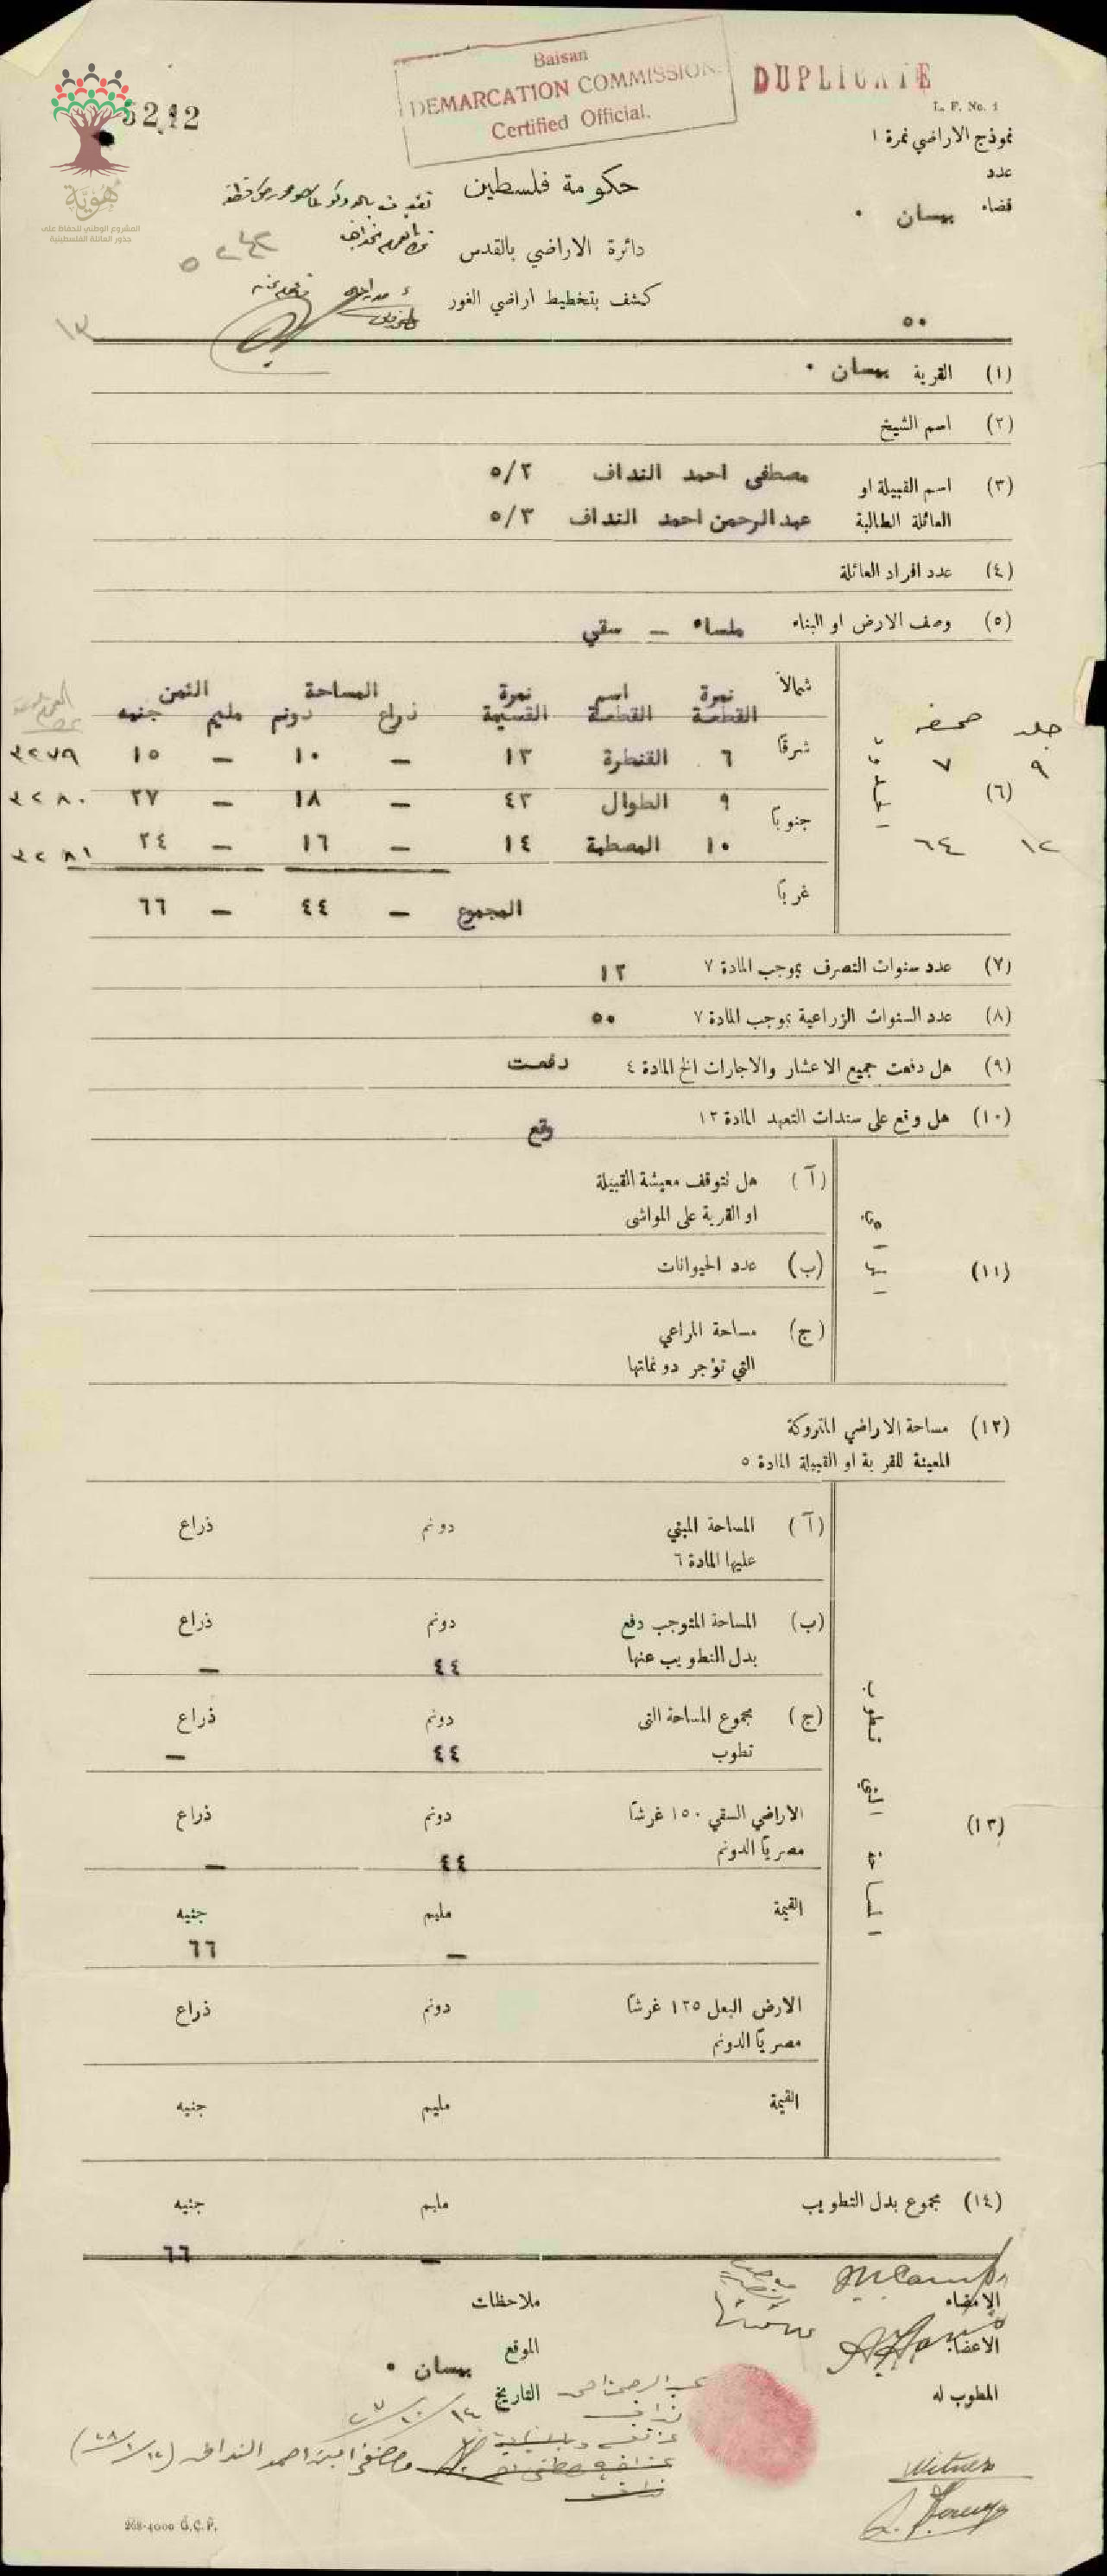 Baisan
DEMARCATION COMMISSION.
Certified Official.
DUPLICATE
L. F. No. 1
5212
هُوِيَّة
المشروع الوطني للحفاظ على
جذور العائلة الفلسطينية
نموذج الاراضي نمرة ١
عدد
قضاء بيسان .
حكومة فلسطين
دائرة الاراضي بالقدس
كشف بتخطيط اراضي الغور
٥٢٤٢
١٣
٥٠
(١) القرية بيسان .
(٢) اسم الشيخ
(٣) اسم القبيلة او مصطفى احمد النداف ٥/٢
العائلة الطالبة عبدالرحمن احمد النداف ٥/٣
(٤) عدد افراد العائلة
(٥) وصف الارض او البناء ملساء – سقي
(٦) الحدود
شمالاً
شرقاً
جنوباً
غرباً
جلد صحيفه
٩ ٧
١٢ ٦٤
نمرة القطعة اسم القطعة نمرة القسيمة المساحة ذراع دونم الثمن مليم جنيه
٦ القنطرة ١٣ – ١٠ – ١٥ ٣٢٧٩
٩ الطوال ٤٣ – ١٨ – ٢٧ ٣٢٨٠
١٠ المصطبة ١٤ – ١٦ – ٢٤ ٣٢٨١
المجموع – ٤٤ – ٦٦
(٧) عدد سنوات التصرف بموجب المادة ٧ ١٢
(٨) عدد السنوات الزراعية بموجب المادة ٧ ٥٠
(٩) هل دفعت جميع الاعشار والاجارات الخ المادة ٤ دفعت
(١٠) هل وقع على سندات التعهد المادة ١٢ وقع
(١١)
(آ) هل تتوقف معيشة القبيلة
او القرية على المواشي
(ب) عدد الحيوانات
(ج) مساحة المراعي
التي تؤجر دونماتها
(١٢) مساحة الاراضي المتروكة
المعينة للقرية او القبيلة المادة ٥
(١٣) المساحة التي تطوب
(آ) المساحة المبني دونم ذراع
عليها المادة ٦
(ب) المساحة المتوجب دفع دونم ذراع
بدل التطويب عنها ٤٤ –
(ج) مجموع المساحة التي دونم ذراع
تطوب ٤٤ –
الاراضي السقي ١٥٠ غرشاً دونم ذراع
مصرياً الدونم ٤٤ –
القيمة مليم جنيه
– ٦٦
الارض البعل ١٢٥ غرشاً دونم ذراع
مصرياً الدونم
القيمة مليم جنيه
(١٤) مجموع بدل التطويب مليم جنيه
– ٦٦
الامضاء
الاعضاء
المطوب له
ملاحظات
الموقع بيسان .
التاريخ
عبد الرحمن احمد
نداف
مصطفى ابن احمد النداف
Witness
268-4000 G.C.P.